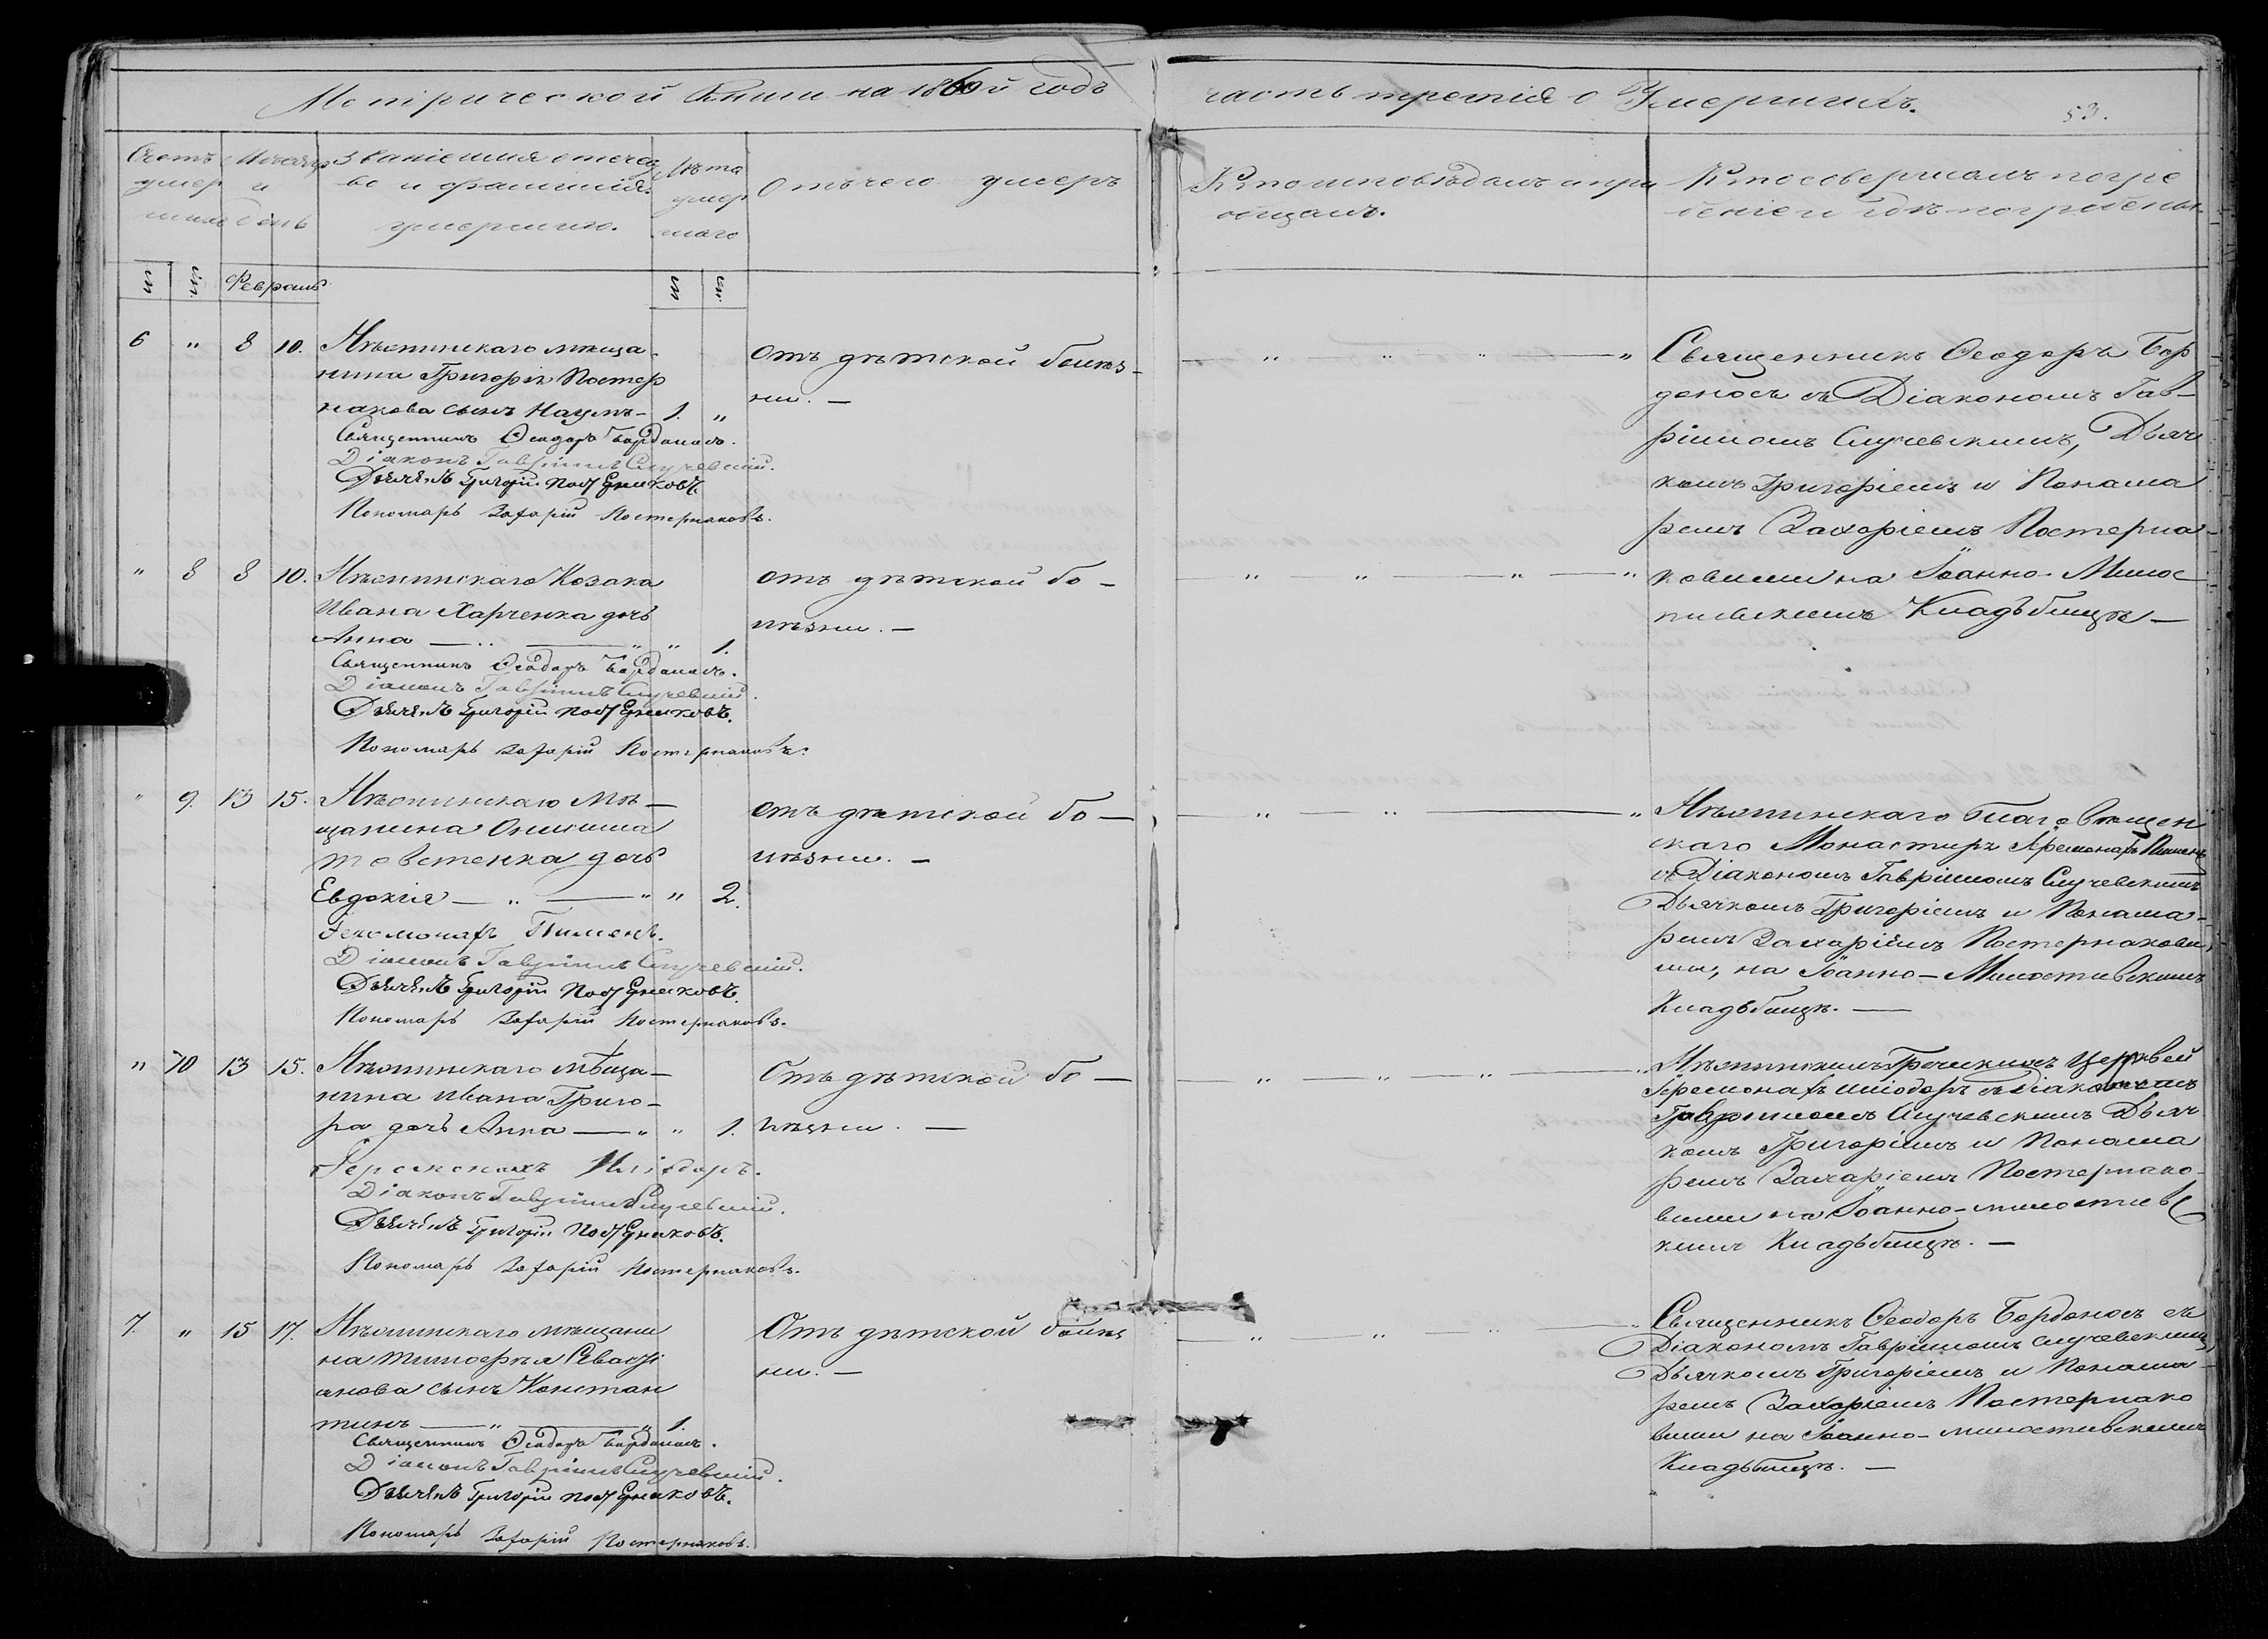 Метрической Книги на 1860й годъ
часть третія о Умершихъ.
53.
Счетъ умер шихъ
Мѣсяцъ и день
Званіе имя отечес
во и фамилія
умершихъ.
Лѣта
умер
шаго
Отъ чего умеръ
Кто исповѣдалъ и при
общалъ.
Кто совершалъ погре
беніе и гдѣ погребены.
Февраль
6 " 8 10. Нѣжинскаго мѣща-
нина Григорія Постер
накова сынъ Наумъ - 1. "
Отъ дѣтской болѣз-
ни. —
Священникъ Ѳеодоръ Бордоносъ.
Діаконъ Гавріилъ Случевскій.
Дьячекъ Григорій Постернаковъ.
Пономарь Захарій Постернаковъ.
Священникъ Ѳеодоръ Бор
доносъ съ Діакономъ Гав-
ріиломъ Случевскимъ, Дьяч
комъ Григоріемъ и Понама
ремъ Захаріемъ Постерна-
ковыми на Іоанно-Милос
тивскомъ Кладъбищѣ —
" 8 8 10. Нѣжинскаго Козака
Ивана Харченка дочь
Анна — " — " " 1.
отъ дѣтской бо-
лѣзни. —
Священникъ Ѳеодоръ Бордоносъ.
Діаконъ Гавріилъ Случевскій.
Дьячекъ Григорій Постернаковъ.
Пономарь Захарій Постернаковъ.
" 9. 13 15. Нѣжинскаго Мѣ-
щанина Онисима
Товстенка дочь
Евдокія — " — " " 2.
отъ дѣтской бо-
лѣзни. —
Іеромонахъ Пименъ.
Діаконъ Гавріилъ Случевскій.
Дьячекъ Григорій Постернаковъ.
Пономарь Захарій Постернаковъ.
Нѣжинскаго Благовѣщен
скаго Монастиря Іеромонахъ Пименъ
съ Діакономъ Гавріиломъ Случевскимъ
Дьячкомъ Григоріемъ и Понама-
ремъ Захаріемъ Постернаковы
ми, на Іоанно-Милостивскомъ
Кладьбищѣ. —
" 10 13 15. Нѣжинскаго мѣща-
нина Ивана Григо-
ра дочь Анна — " " 1.
Отъ дѣтской бо-
лѣзни. —
Іеромонахъ Иліодоръ.
Діаконъ Гавріилъ Случевскій.
Дьячекъ Григорій Постернаковъ.
Пономарь Захарій Постернаковъ.
Нѣжинскихъ Греческихъ Церквей
Іеромонахъ Иліодоръ съ Діакономъ
Гавріиломъ Случевскимъ Дьяч
комъ Григоріемъ и Понама
ремъ Захаріемъ Постернако-
выми на Іоанно-милостивс
комъ Кладьбищѣ. —
7. " 15 17. Нѣжинскаго мѣщани
на Тимофея Севасті
анова сынъ Констан
тинъ — " — " 1.
Отъ дѣтской болѣз
ни. —
Священникъ Ѳеодоръ Бордоносъ.
Діаконъ Гавріилъ Случевскій.
Дьячекъ Григорій Постернаковъ.
Пономарь Захарій Постернаковъ.
Священникъ Ѳеодоръ Бордоносъ съ
Діакономъ Гавріиломъ Случевскимъ,
Дьячкомъ Григоріемъ и Понама-
ремъ Захаріемъ Постернако
выми на Іоанно-милостивскомъ
Кладьбищѣ. —